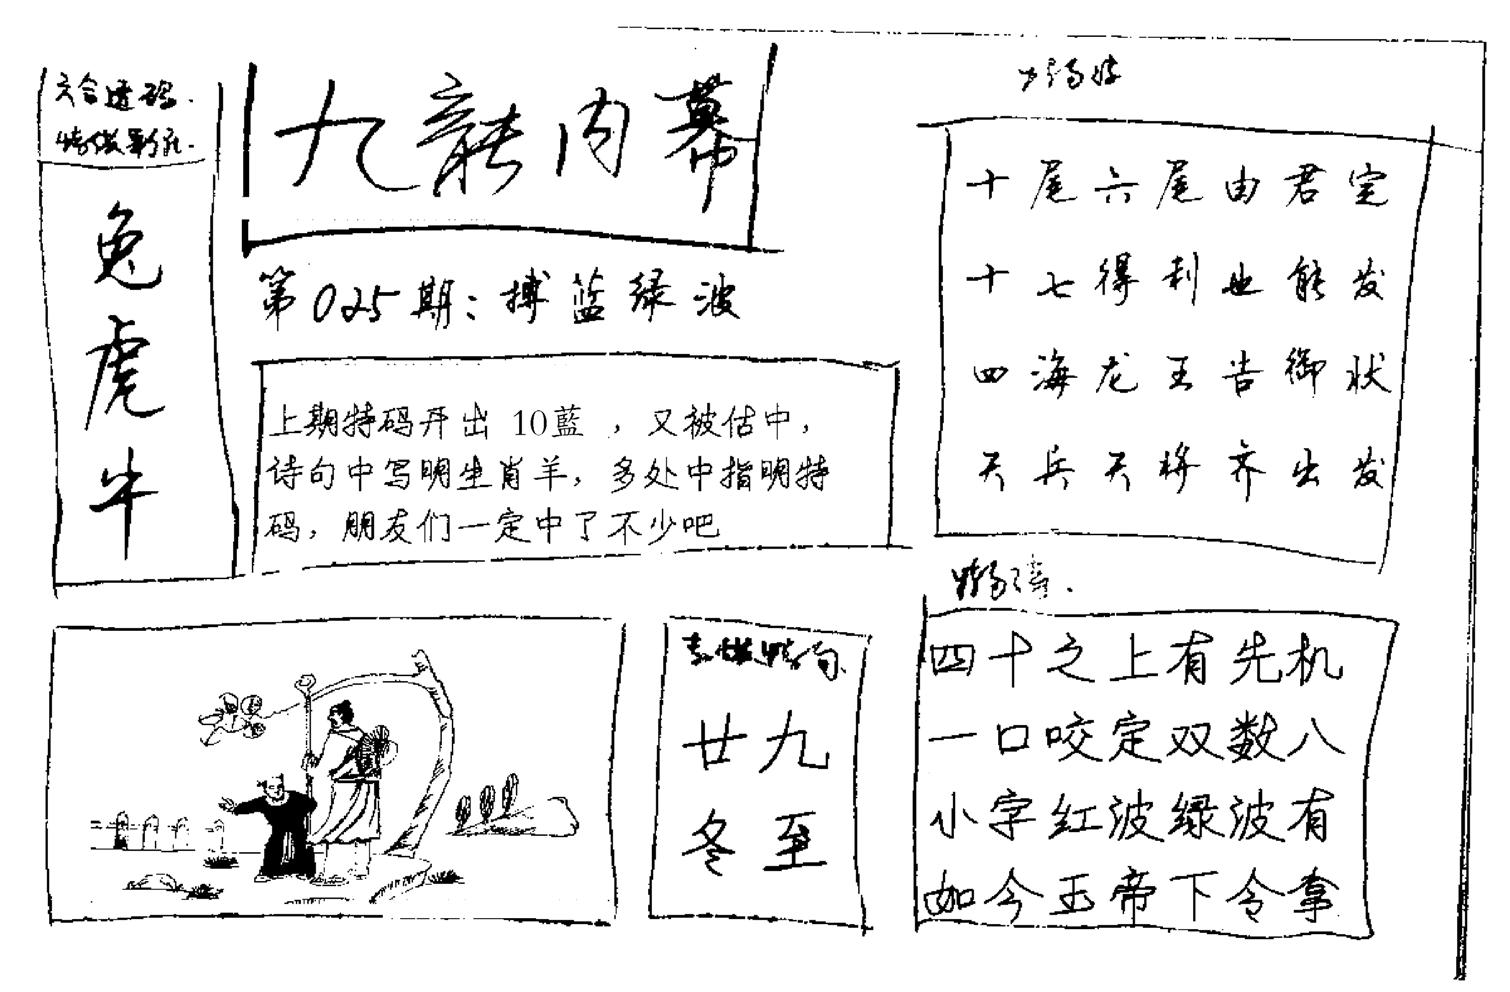 六合透码.
兔
虎
牛
九龍内幕
第025期：搏蓝绿波
上期特码开出 10藍 ，又被估中，
诗句中写明生肖羊，多处中指明特
码，朋友们一定中了不少吧
十尾六尾由君定
十七得利也能发
四海龙王告御状
天兵天将齐出发
廿九
冬至
四十之上有先机
一口咬定双数八
小字红波绿波有
如今玉帝下令拿